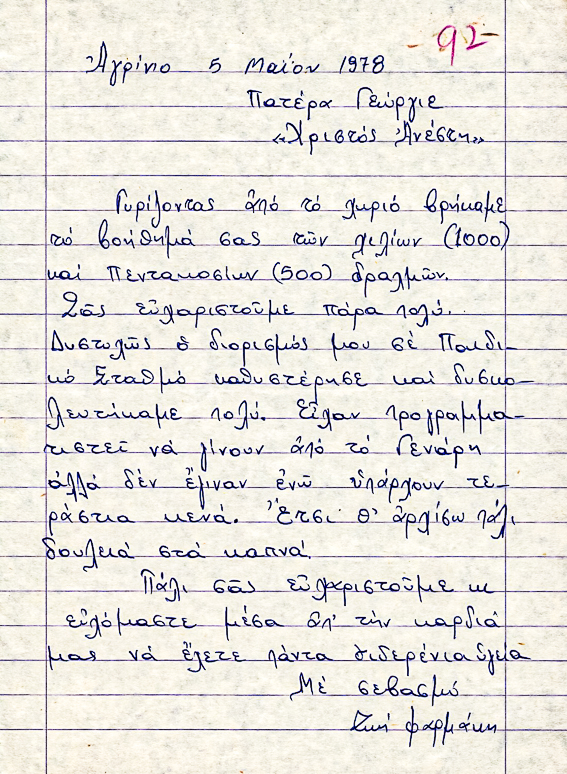 -92-
Ἀγρίνιο 5 Μαΐου 1978
Πατέρα Γεώργιε
«Χριστός Ἀνέστη»
Γυρίζοντας ἀπό τό χωριό βρήκαμε
τό βοήθημά σας τῶν χιλίων (1000)
καί πεντακοσίων (500) δραχμῶν.
Σᾶς εὐχαριστοῦμε πάρα πολύ.
Δυστυχῶς ὁ διορισμός μου σέ Παιδι-
κό Σταθμό καθυστέρησε καί δυσκο-
λευτήκαμε πολύ. Εἶχαν προγραμμα-
τιστεῖ νά γίνουν ἀπό τό Γενάρη
ἀλλά δέν ἔγιναν ἐνῶ ὑπάρχουν τε-
ράστια κενά. Ἔτσι θ' ἀρχίσω πάλι
δουλειά στά καπνά.
Πάλι σᾶς εὐχαριστοῦμε κ
εὐχόμαστε μέσα ἀπ' τήν καρδιά
μας νά ἔχετε πάντα σιδερένια ὑγεία
Μέ σεβασμό
φαρμάκη